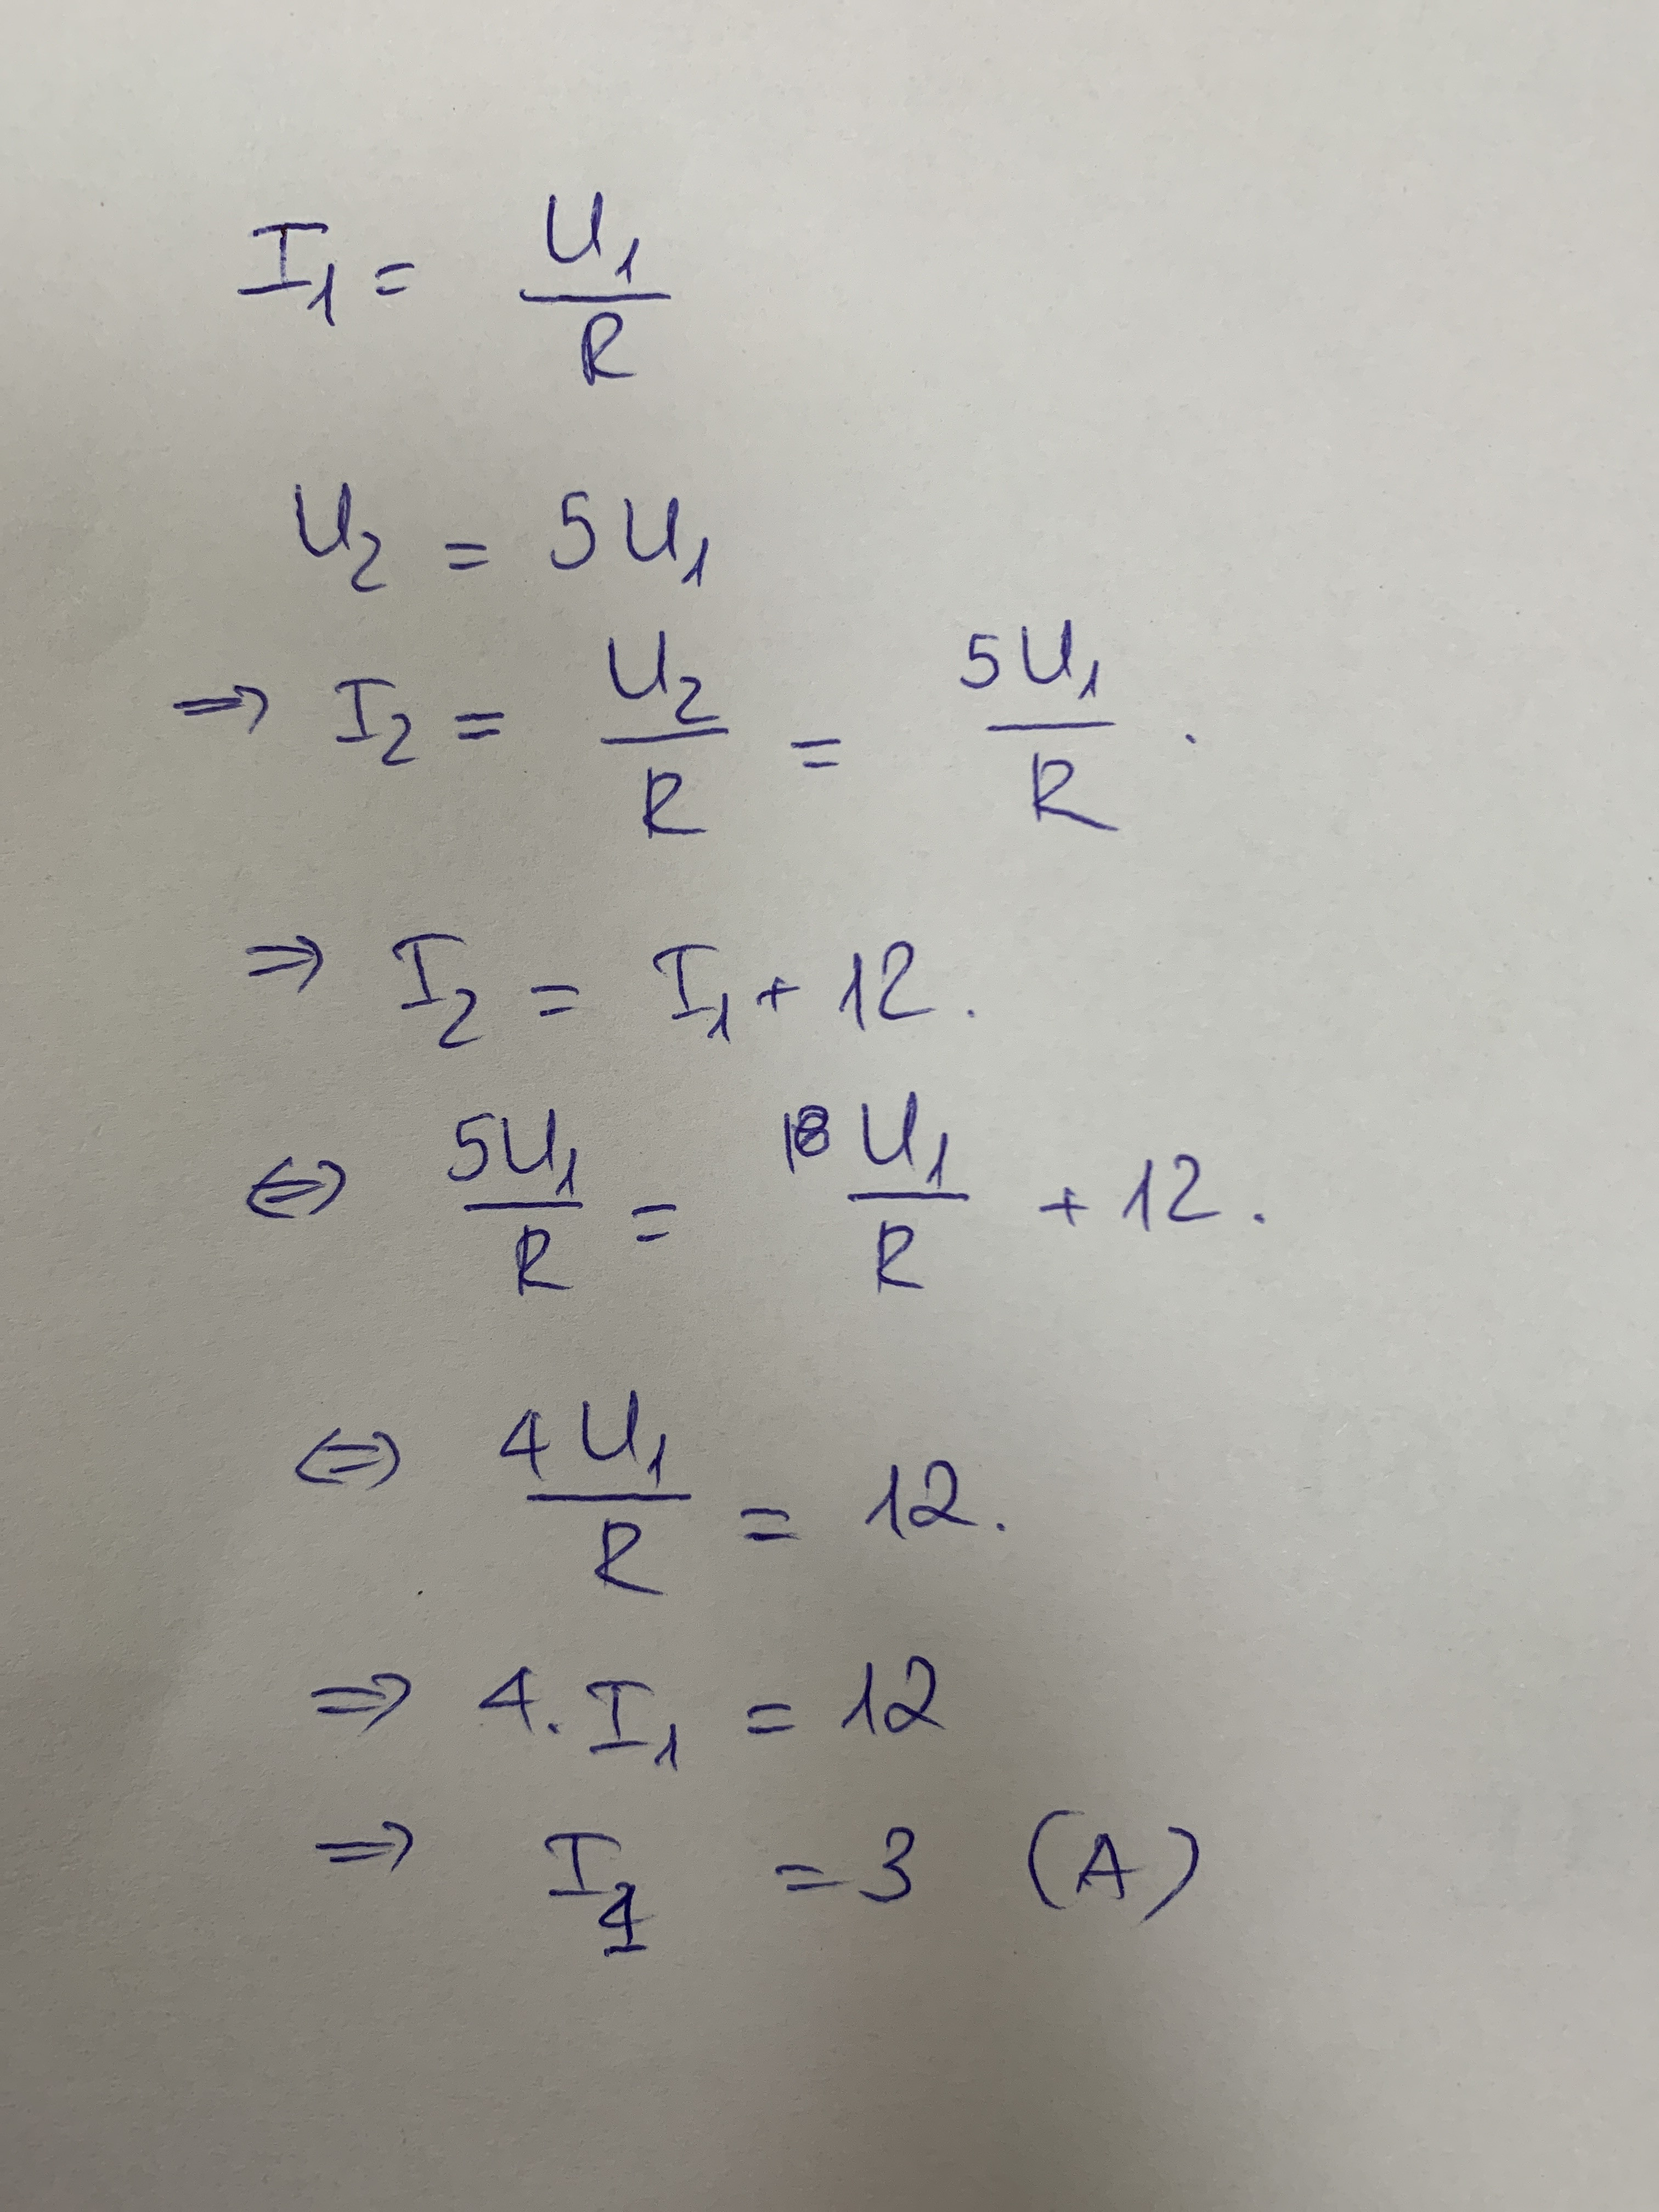 I₁ = U₁/R
U₂ = 5U₁
⇒ I₂ = U₂/R = 5U₁/R.
⇒ I₂ = I₁ + 12.
⇔ 5U₁/R = U₁/R + 12.
⇔ 4U₁/R = 12.
⇒ 4. I₁ = 12
⇒ I₁ = 3 (A)